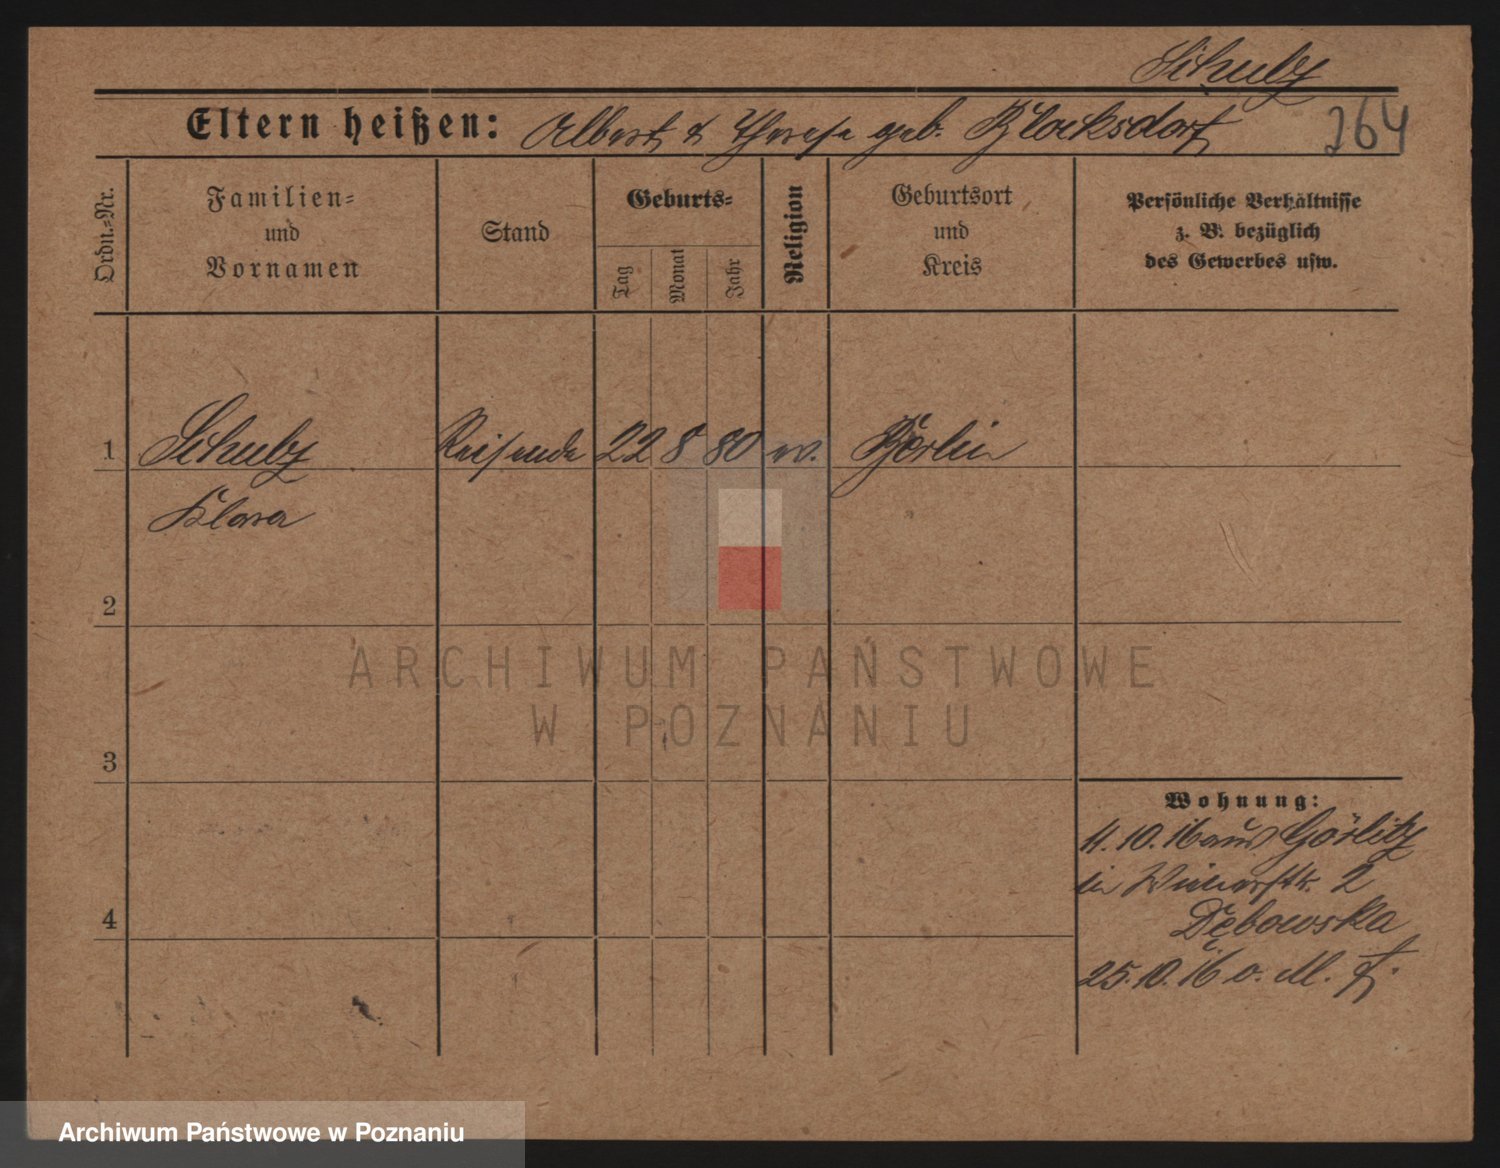 Schulz
Eltern heißen: Albert & Therese geb. Blocksdorf 264
Ordn.-Nr.
Familien-
und
Vornamen
Stand
Geburts-
Tag
Monat
Jahr
Religion
Geburtsort
und
Kreis
Persönliche Verhältnisse
z. B. bezüglich
des Gewerbes usw.
1 Schulz Reisende 22 8 80 ev. Berlin
Klara
2
3
4
Wohnung:
11.10.16 aus Görlitz
in Wienerstr. 2
Dębowska
25.10.16 o. M. f.
ARCHIWUM PAŃSTWOWE
W POZNANIU
Archiwum Państwowe w Poznaniu